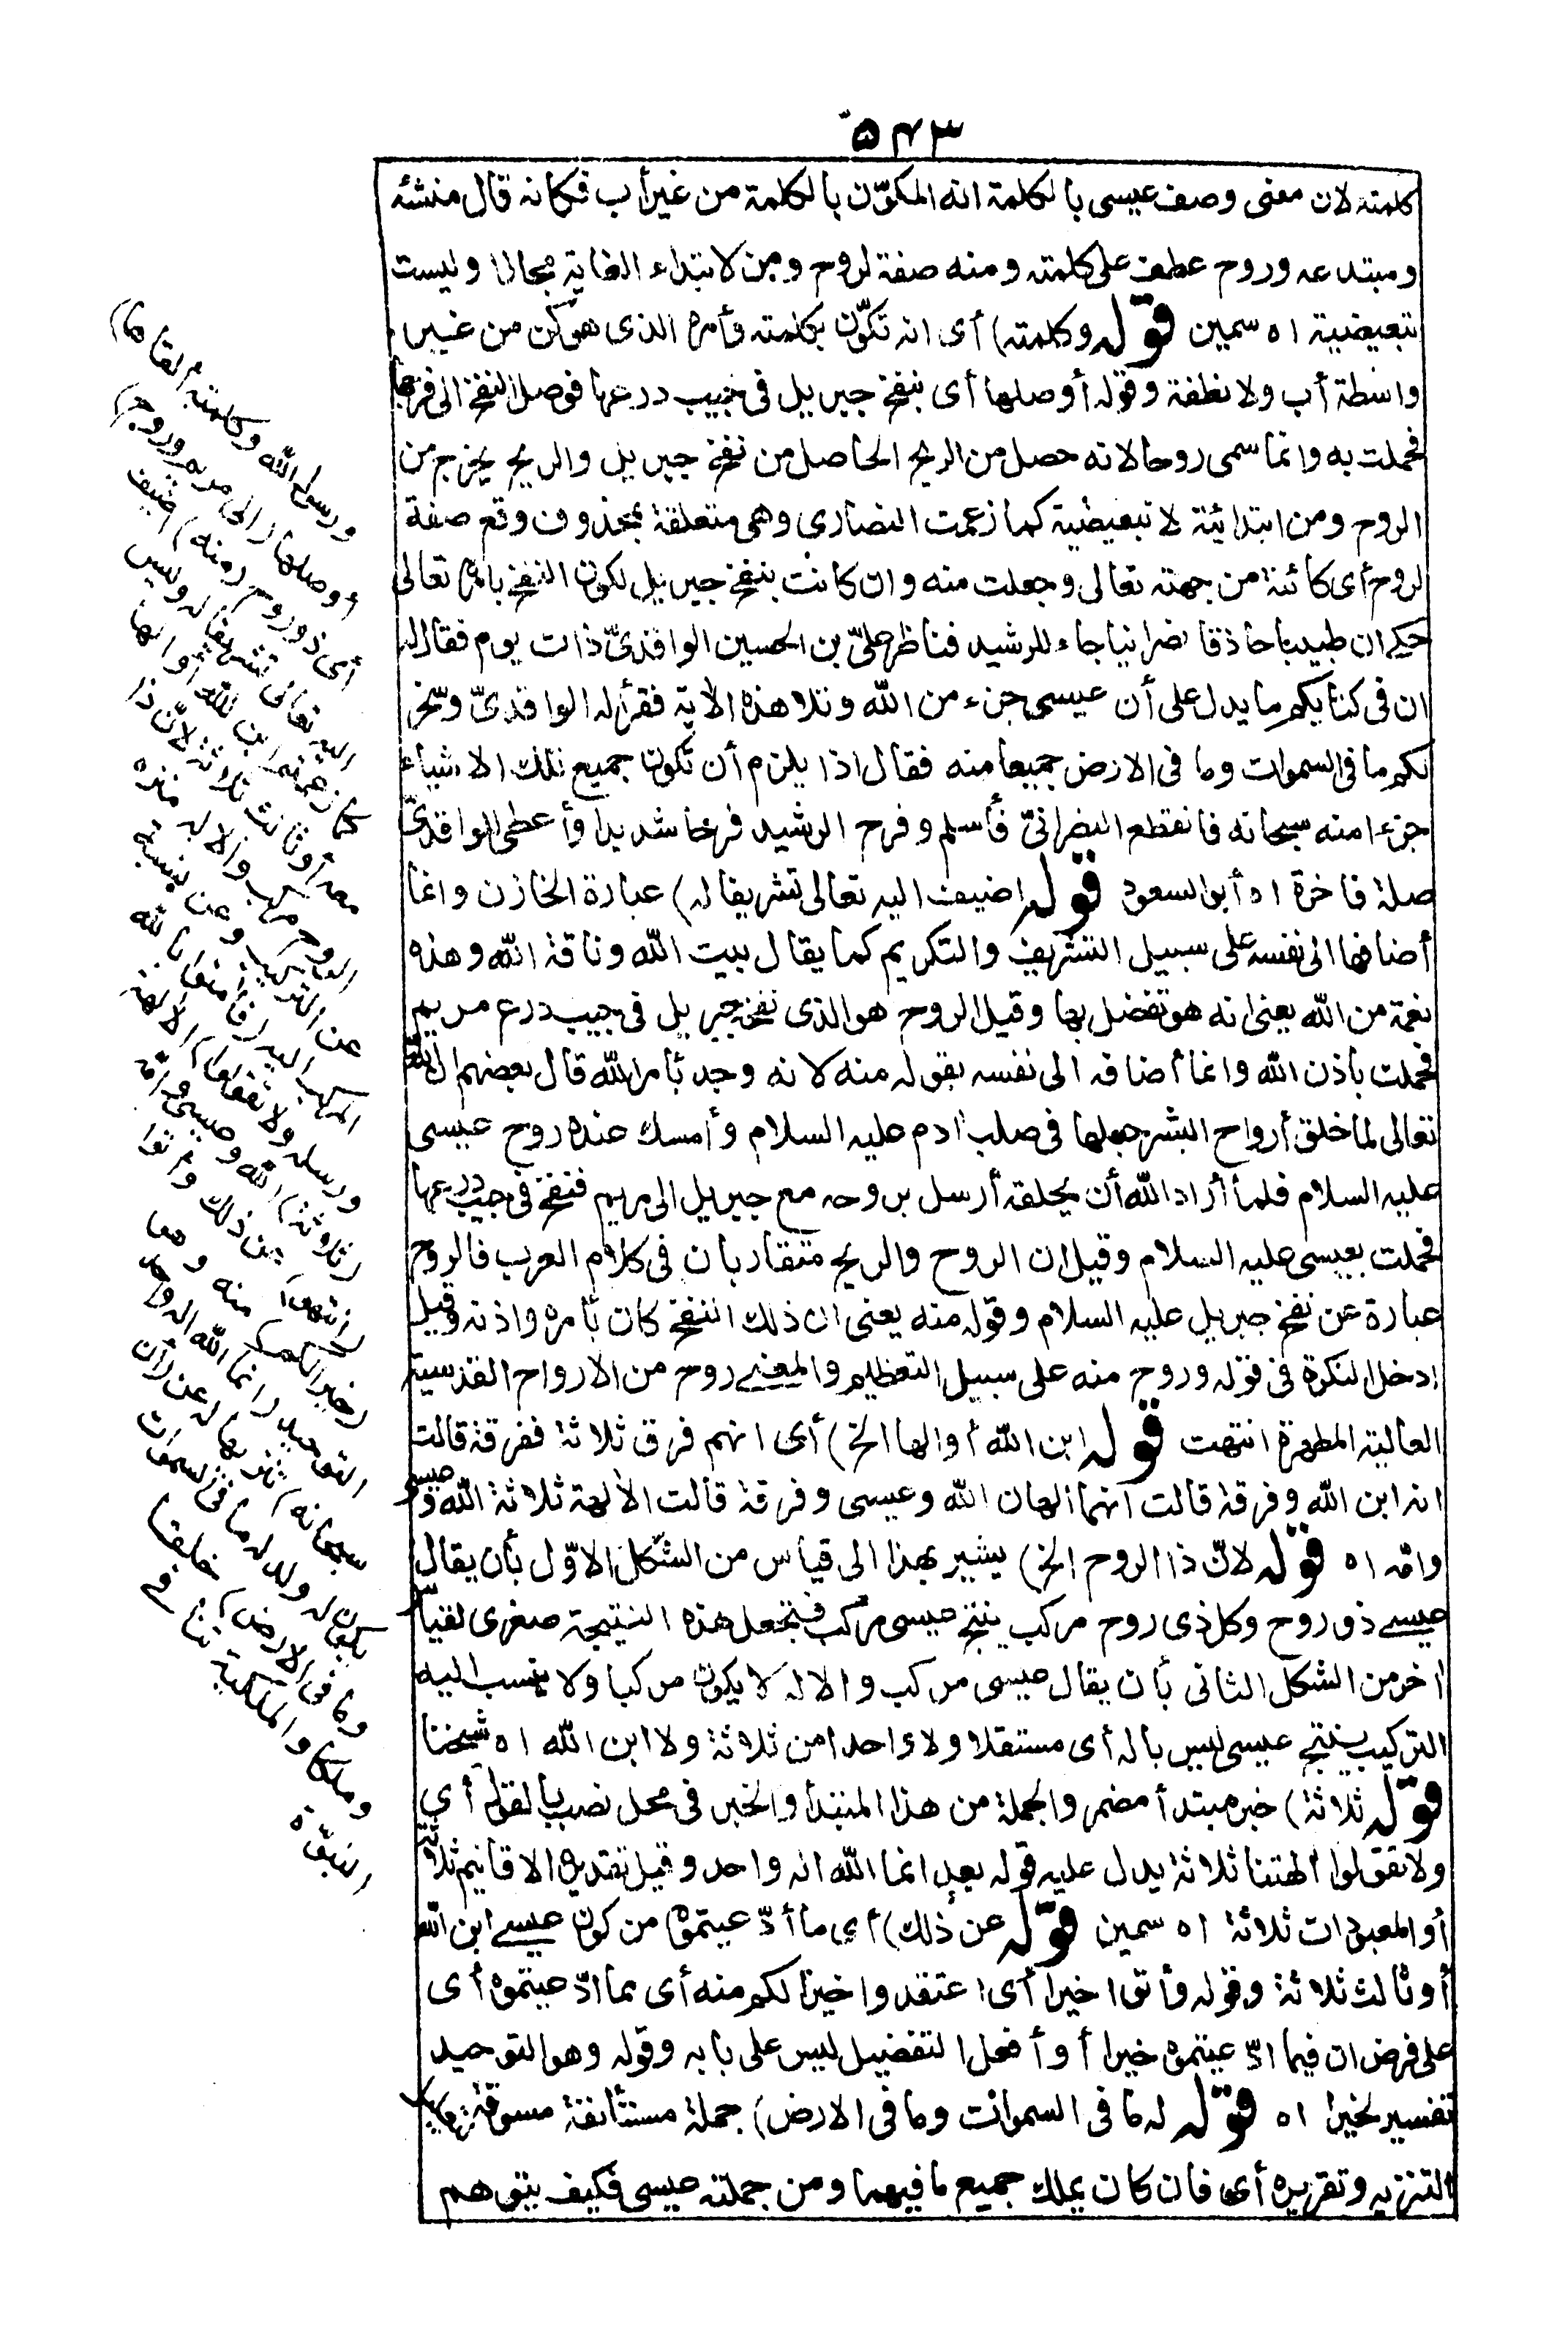 ٥٤٣
كلمته لان معنى وصف عيسى بالكلمة انه المكوّن بالكلمة من غير أب فكانه قال منشئه
ومبتدعه وروح عطف على كلمته ومنه صفة لروح ومن لابتداء الغاية مجازا وليست
تبعيضية اه سمين قوله وكلمته) أى انه تكوّن بكلمته وأمره الذى هو كن من غير
واسطة أب ولا نطفة وقوله أوصلها أى بنفخ جبريل فى جيب درعها فوصل النفخ الى فرجها
فحملت به وانما سمى روحا لانه حصل من الريح الحاصل من نفخ جبريل والريح يخرج من
الروح ومن ابتدائية لا تبعيضية كما زعمت النصارى وهى متعلقة بمحذوف وقع صفة
لروح أى كائنة من جهته تعالى وجعلت منه وان كانت بنفخ جبريل لكون النفخ بأمره تعالى
حكى ان طبيبا حاذقا نصرانيا جاء للرشيد فناظر علىّ بن الحسين الواقدىّ ذات يوم فقال له
ان فى كتابكم ما يدل على أن عيسى جزء من الله وتلا هذه الآية فقرأ له الواقدىّ وسخر
لكم ما فى السموات وما فى الارض جميعا منه فقال اذا يلزم أن تكون جميع تلك الاشياء
جزءا منه سبحانه فانقطع النصرانىّ فأسلم وفرح الرشيد فرحا شديدا وأعطى الواقدىّ
صلة فاخرة اه أبو السعود قوله اضيف اليه تعالى تشريفا له) عبارة الخازن وانما
أضافها الى نفسه على سبيل التشريف والتكريم كما يقال بيت الله وناقة الله وهذه
نعمة من الله يعنى انه هو تفضل بها وقيل الروح هو الذى نفخ جبريل فى جيب درع مريم
فحملت باذن الله وانما أضافه الى نفسه بقوله منه لانه وجد بأمر الله قال بعضهم ان الله
تعالى لما خلق أرواح البشر جعلها فى صلب آدم عليه السلام وأمسك عنده روح عيسى
عليه السلام فلما أراد الله أن يخلقه أرسل بروحه مع جبريل الى مريم فنفخ فى جيب درعها
فحملت بعيسى عليه السلام وقيل ان الروح والريح متقاربان فى كلام العرب فالروح
عبارة عن نفخ جبريل عليه السلام وقوله منه يعنى ان ذلك النفخ كان بأمره واذنه وقيل
ادخل النكرة فى قوله وروح منه على سبيل التعظيم والمعنى روح من الارواح القدسية
العالية المطهرة انتهت قوله ابن الله أو الها الخ) أى انهم فرق ثلاثة ففرقة قالت
انه ابن الله وفرقة قالت انهما الهان الله وعيسى وفرقة قالت الآلهة ثلاثة الله وعيسى
وامّه اه قوله لانّ ذا الروح الخ) يشير بهذا الى قياس من الشكل الاوّل بأن يقال
عيسى ذو روح وكل ذى روح مركب ينتج عيسى مركب فتجعل هذه النتيجة صغرى لقياس
آخر من الشكل الثانى بأن يقال عيسى مركب والاله لا يكون مركبا ولا ينسب اليه
التركيب ينتج عيسى ليس باله أى مستقلا ولا واحدا من ثلاثة ولا ابن الله اه شيخنا
قوله ثلاثة) خبر مبتدأ مضمر والجملة من هذا المبتدأ والخبر فى محل نصب بالقول أى
ولا تقولوا آلهتنا ثلاثة يدل عليه قوله بعد انما الله اله واحد وقيل تقديره الاقانيم ثلاثة
أو المعبودات ثلاثة اه سمين قوله عن ذلك) أى ما أدّعيتموه من كون عيسى ابن الله
أو ثالث ثلاثة وقوله وأتوا خيرا أى اعتقدوا خيرا لكم منه أى مما ادّعيتموه أى
على فرض ان فيما ادّعيتموه خيرا أو أفعل التفضيل ليس على بابه وقوله وهو التوحيد
تفسير لخيرا اه قوله له ما فى السموات وما فى الارض) جملة مستأنفة مسوقة لتعليل
التنزيه وتقريره أى فان كان يملك جميع ما فيهما ومن جملته عيسى فكيف يتوهم
ورسول الله وكلمته ألقاها)
أوصلها (الى مريم وروح)
أى ذو روح (منه) اضيف
اليه تعالى تشريفا له وليس
كما زعمتم ابن الله أو الها
معه أو ثالث ثلاثة لانّ ذا
الروح مركب والاله منزه
عن التركيب وعن نسبة
المركب اليه (فآمنوا بالله
ورسله ولا تقولوا) الآلهة
(ثلاثة) الله وعيسى وامّه
(انتهوا) عن ذلك وأتوا
(خيرا لكم) منه وهو
التوحيد (انما الله اله واحد
سبحانه) تنزيها له عن (أن
يكون له ولد له ما فى السموات
وما فى الارض) خلقا
وملكا والملكية تنافى
النبوّة